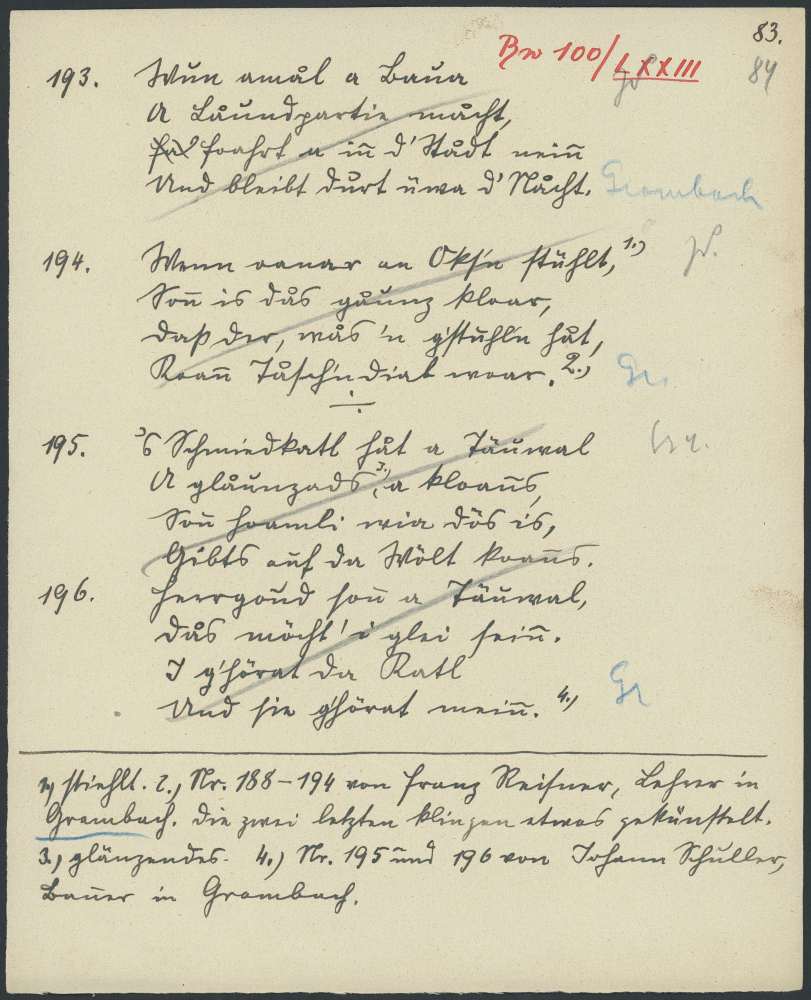 83.
Bw 100/LXXIII
84
193. Wun amål a Baua
A Låundpartie måcht,
foahrt a in̄ d' Stådt nein̄
Und bleibt durt üwa d' Nåcht.
Grambach
194. Wenn oanar an Oks'n stühlt,1.)
Son̄ is dås gåunz kloar,
Daß der, wås 'n g'stuhl'n håt,
Koan̄ Tåsch'ndiab woar.2.)
Gr.
195. 's Schmiedkatl håt a Täuwal
A glåunzads3.), a kloan̄s,
Son̄ hoamli wia dös is,
Gibts auf da Wölt koan̄s.
196. Herrgoud son̄ a Täuwal,
Dås möcht' i glei sein̄.
I g'hörat da Katl
Und sie g'hörat mein̄. 4.)
Gr
1.) stiehlt. 2.) Nr. 188-194 von Franz Reisner, Lehrer in
Grambach. Die zwei letzten klingen etwas gekünstelt.
3.) glänzendes. 4.) Nr. 195 und 196 von Johann Schuller,
Bauer in Grambach.